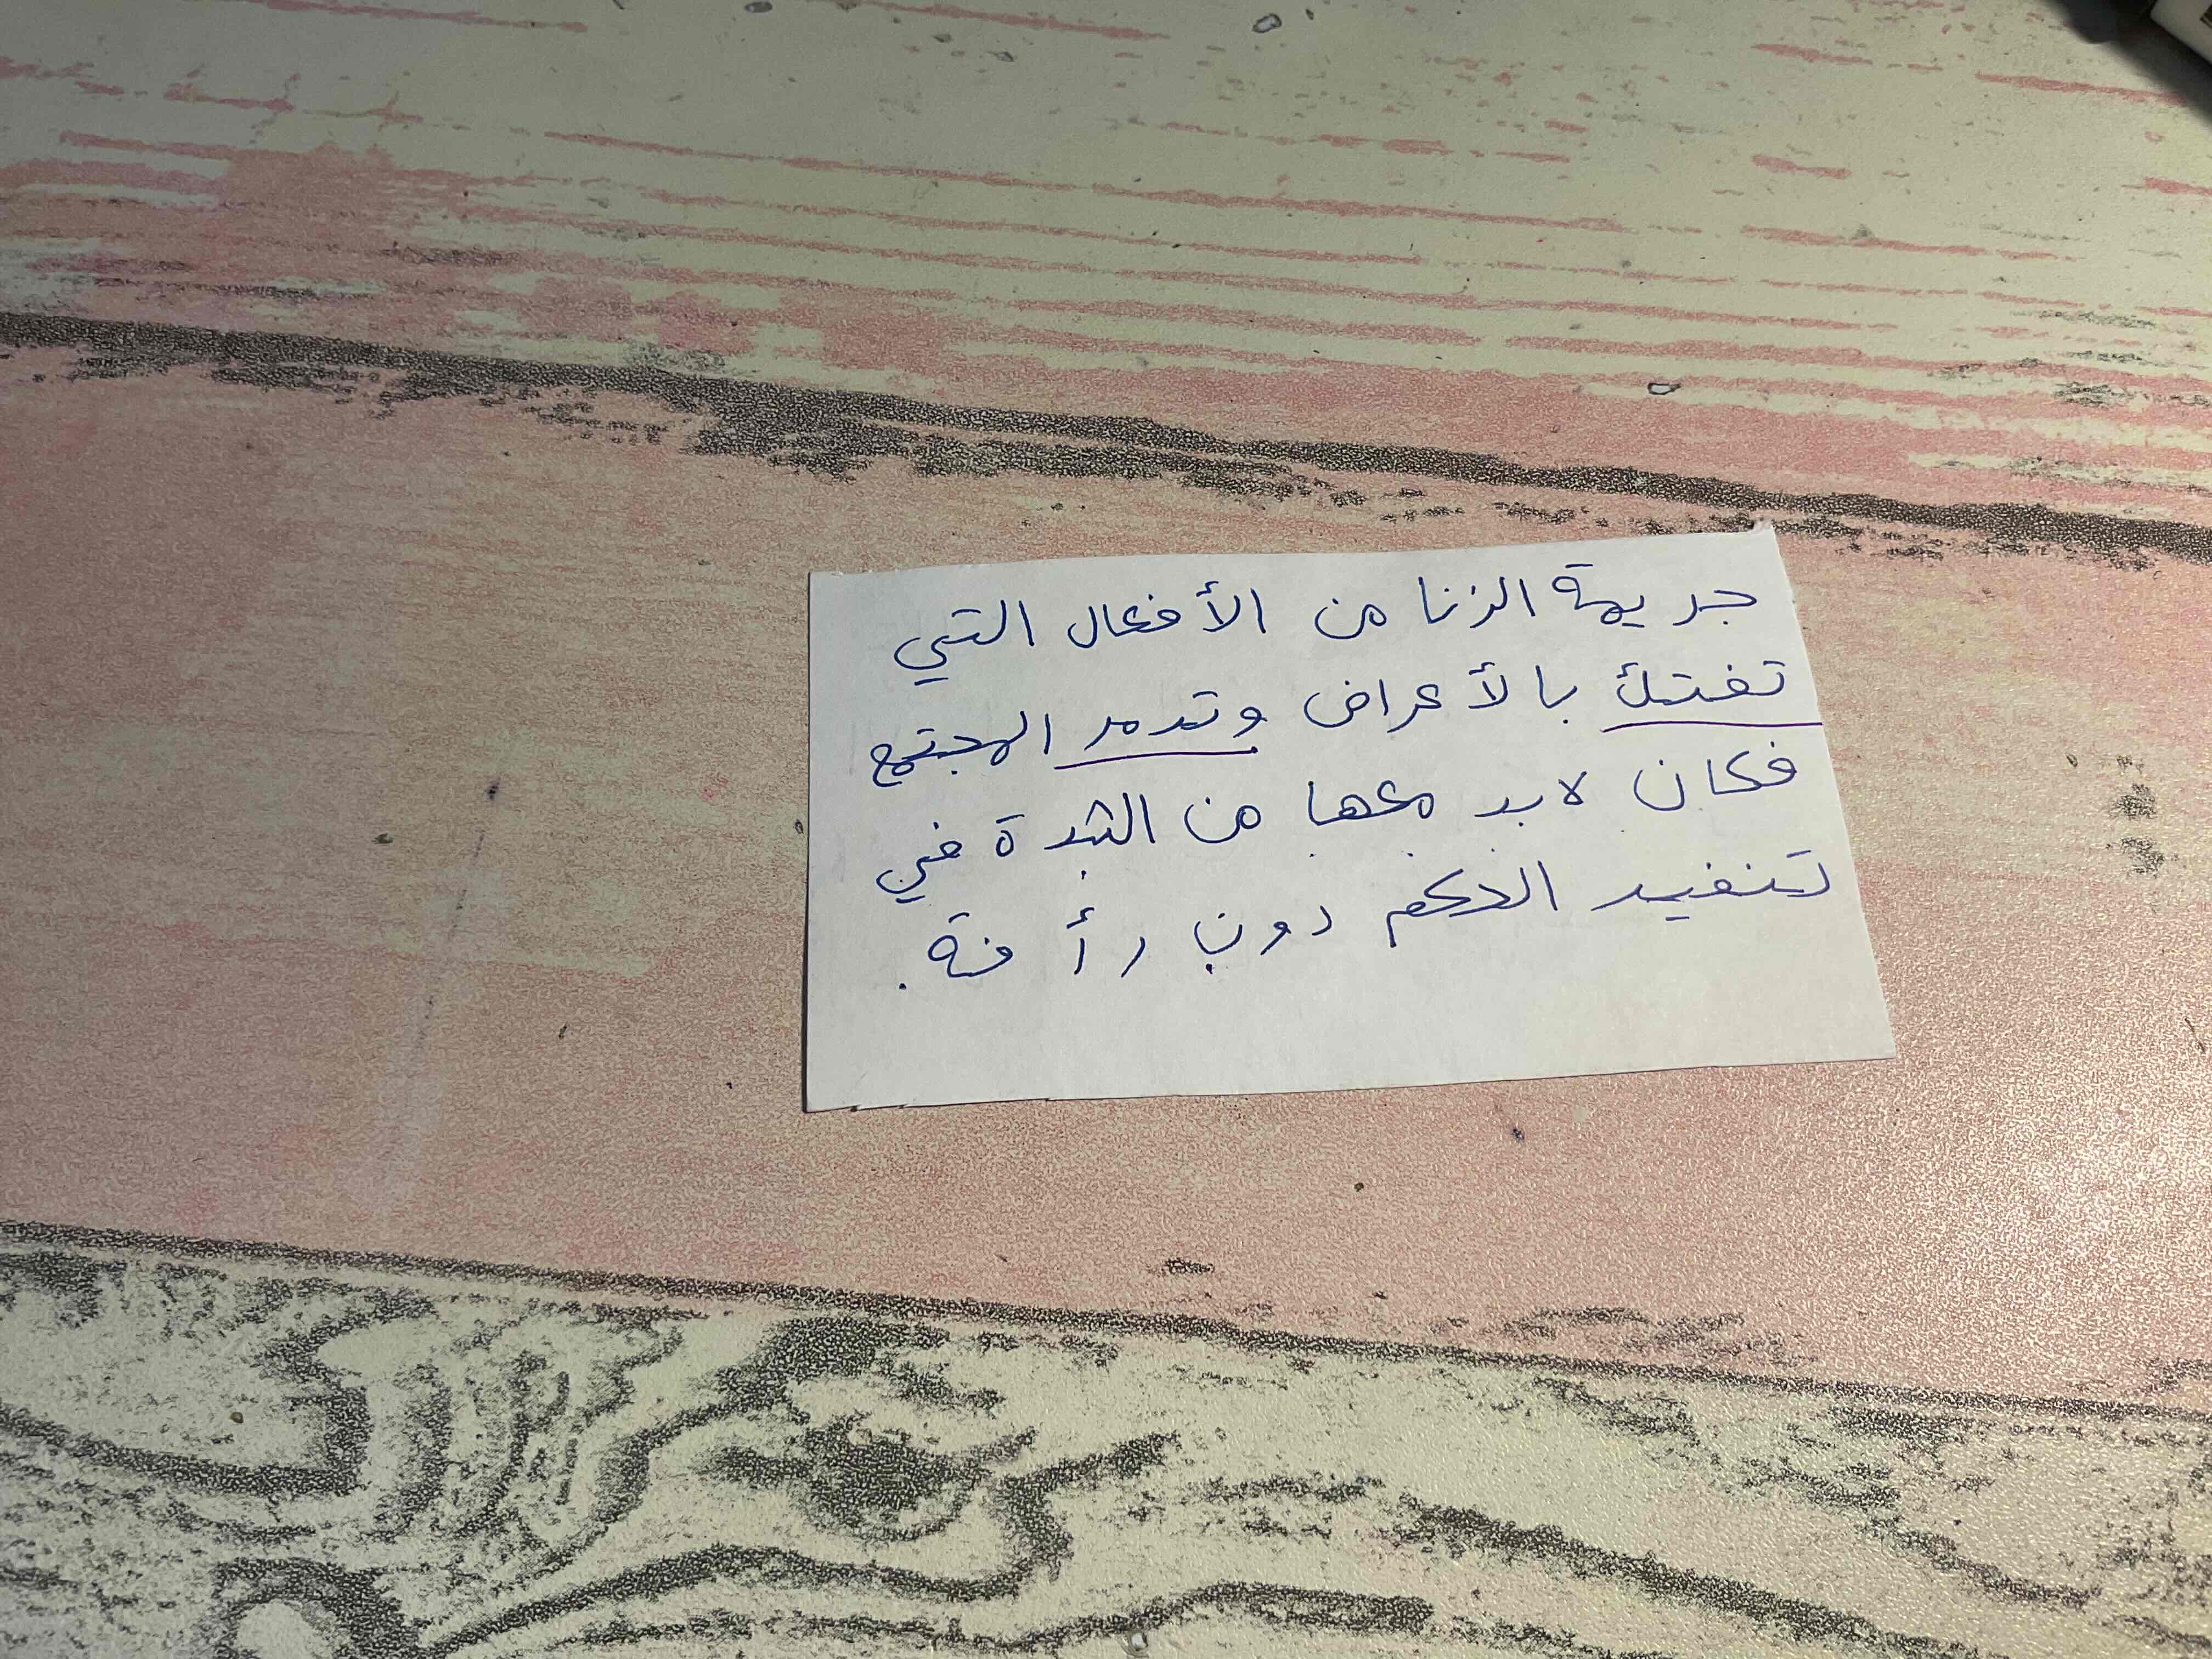 جريمة الزنا من الأفعال التي
تفتك بالأعراض وتدمر المجتمع
فكان لابد معها من الشدة في
تنفيد الحكم دون رأفة.